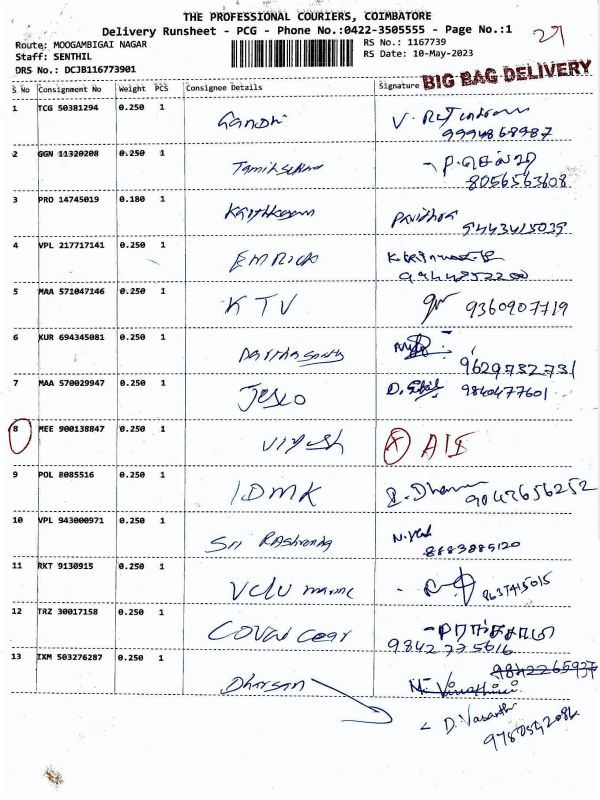 THE PROFESSIONAL COURIERS, COIMBATORE
Delivery Runsheet - PCG - Phone No.:0422-3505555 - Page No.:1
29
Route: MOOGAMBIGAI NAGAR
RS No.: 1167739
Staff: SENTHIL
RS Date: 10-May-2023
DRS No.: DCJB116773901
BIG BAG DELIVERY
S No Consignment No Weight PCS Consignee Details Signature
1 TCG 50381294 0.250 1 Gandhi V.
9994868987
2 GGN 11320208 0.250 1 P. செல்வி
8056563608
3 PRO 14745019 0.180 1 Pavithra
9443415039
4 VPL 217717141 0.250 1 EMRICK
9944852200
5 MAA 571047146 0.250 1 KTV 9360907719
6 KUR 694345081 0.250 1
9629732731
7 MAA 570029947 0.250 1 Jesco D. 9840477601
8 MEE 900138847 0.250 1 X
9 POL 8085516 0.250 1 IDMK 9047656252
10 VPL 943000971 0.250 1 Sri N.
8883885120
11 RKT 9130915 0.250 1 8637415015
12 TRZ 30017158 0.250 1
9842775616
13 IXM 503276287 0.250 1 Dharsan 9842265937
D. Vasanthi